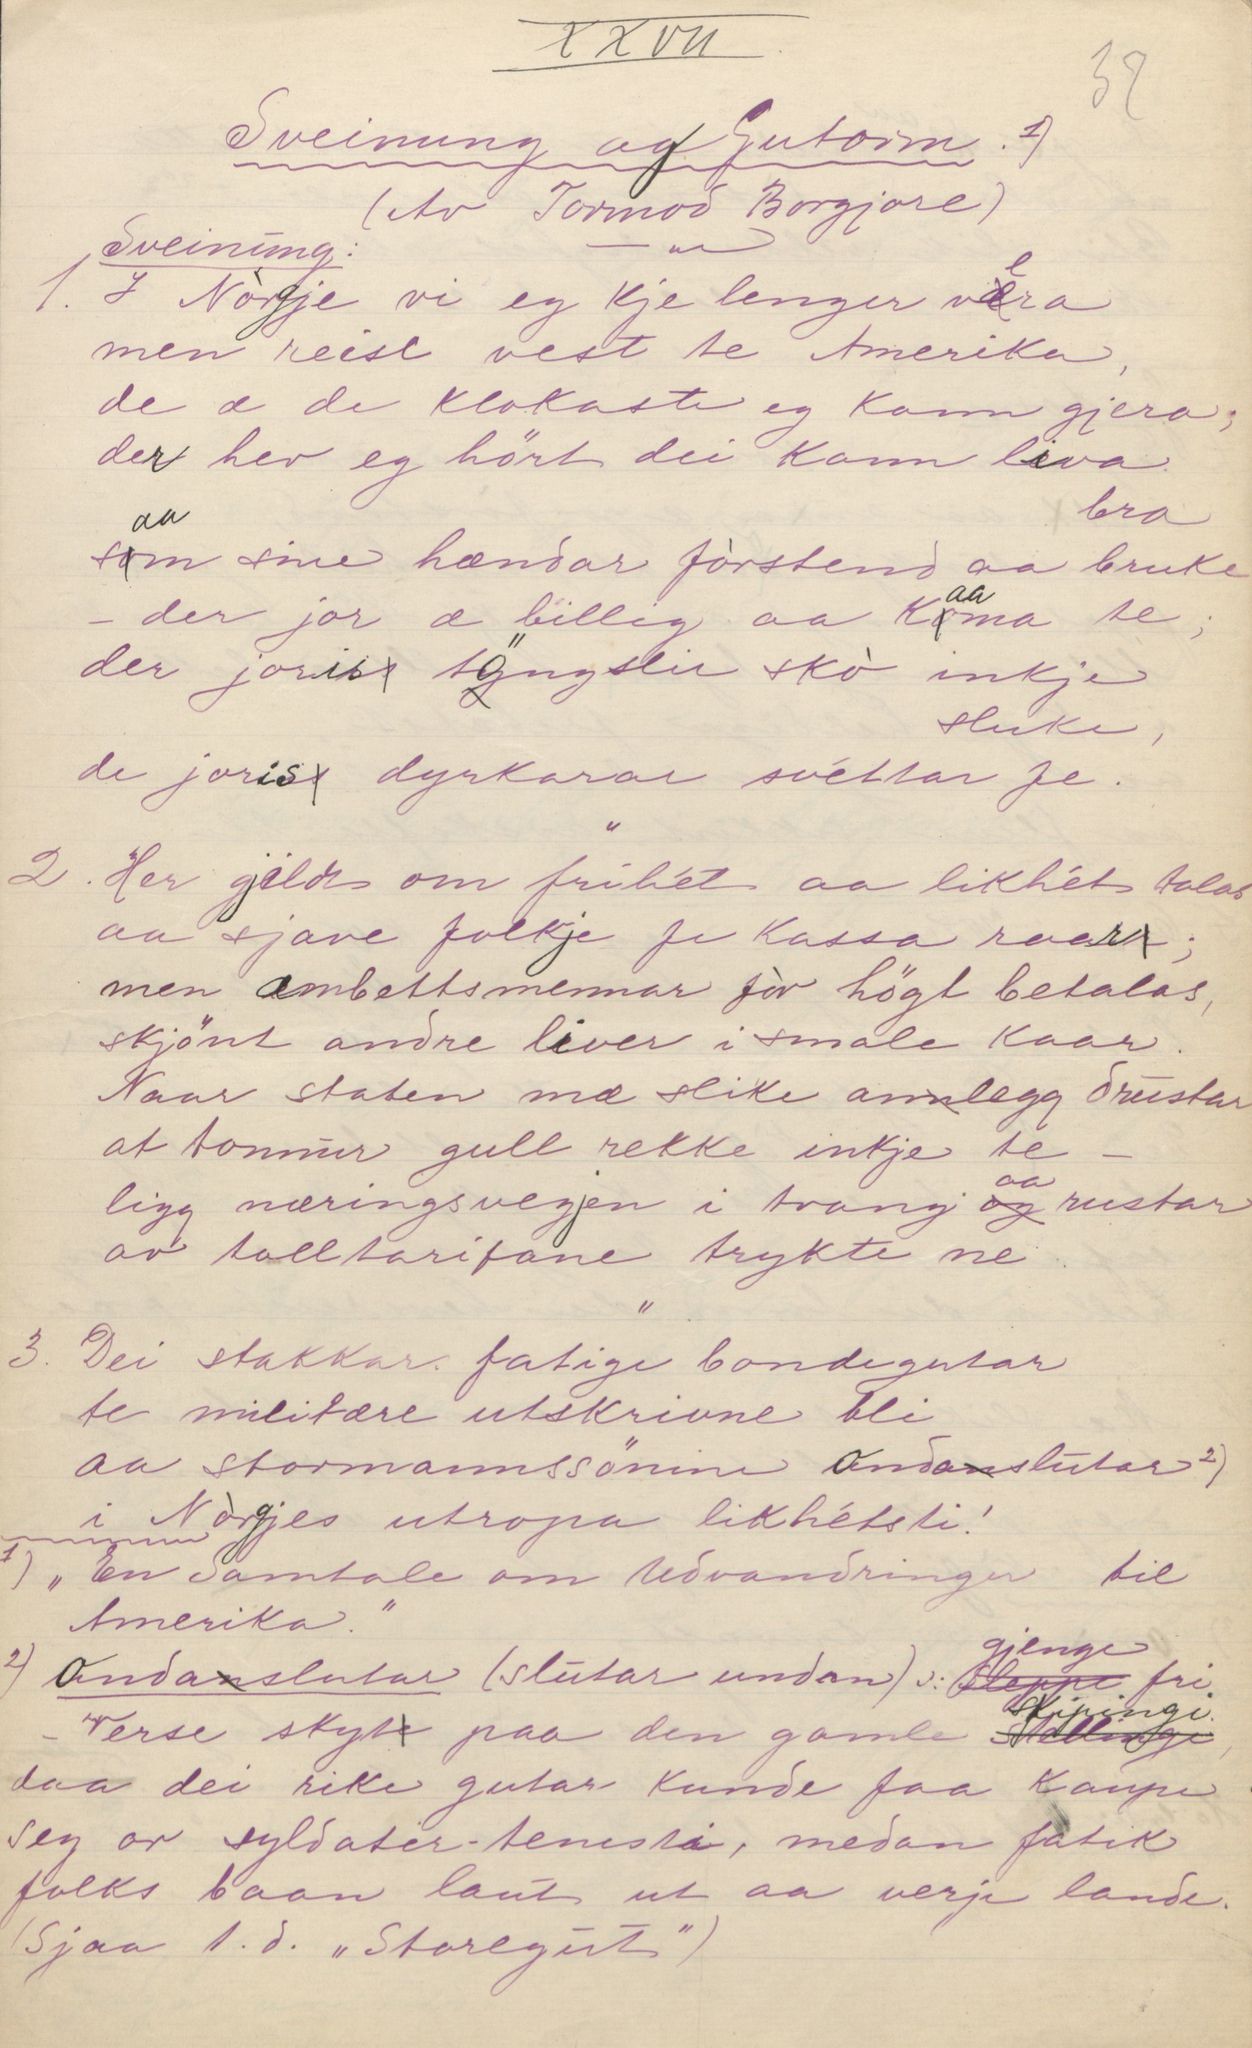 XXVII
38
Sveinung og Gutorm. 1)
(Av Tormod Borgjore)
Sveinung:
1. I Nòrgje vi eg kje lenger vera
men reise vest te Amerika,
de æ de klokaste eg kann gjera,
der hev eg hört dei kann liva
bra
saam sine hændar fòrstend aa bruke
– der jor æ billig aa kaama te;
der joris töngslir skò inkje
sluke,
de joris dyrkarar svéttar fe.
"
2. Her gjildt om frihét aa likhét talas
aa sjave folkje fe kassa raar;
men æmbettsmennar fòr högt betalas,
skjönt andre liver i smale kaar.
Naar staten mæ slike anlegg drustar
at tonnur gull rekke inkje te –
ligg næringsvegjen i tvang aa rustar
av tolltarifane trykte ne.
"
3. Dei stakkar fatige bondegutar
te militære utskrivne bli
aa stormannssönine ondaslutar 2)
i Nòrgjes utropa likhétsti!
1) „En Samtale om Udvandringen til
Amerika."
2) ondaslutar (slutar undan) ɔ: gjenge fri
– Verse sky paa den gamle skipingi,
daa dei rike gutar kunde faa kaupe
seg or syldater-tenesta, medan fatik
folks baan laut ut aa verje lande.
(Sjaa t. d. „Storegut")